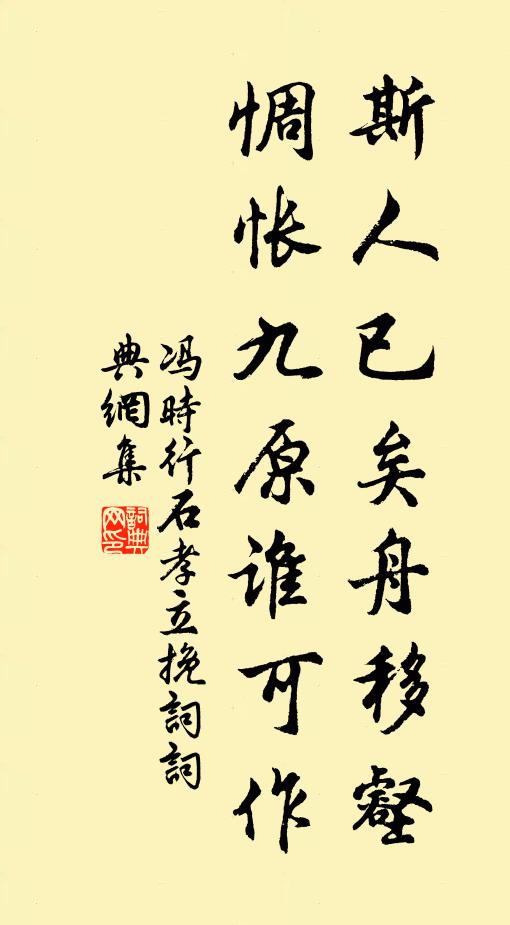 斯人已矣舟移壑
惆怅九原谁可作
冯時行石孝立挽詞詞
典網集
詞典
网印